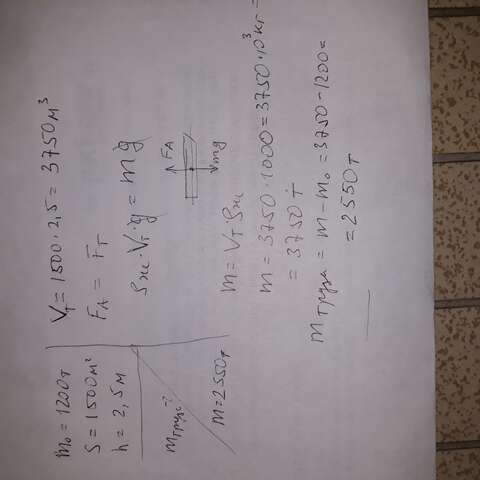 m₀ = 1200т
S = 1500м²
h = 2,5м
mгруза-?
M = 2550т
Vт = 1500 · 2,5 = 3750м³
FA = Fт
ρж · Vт · g = mg
FA
mg
m = Vт ρж
m = 3750 · 1000 = 3750 · 10³кг =
= 3750т
mгруза = m - m₀ = 3750 - 1200 =
= 2550т